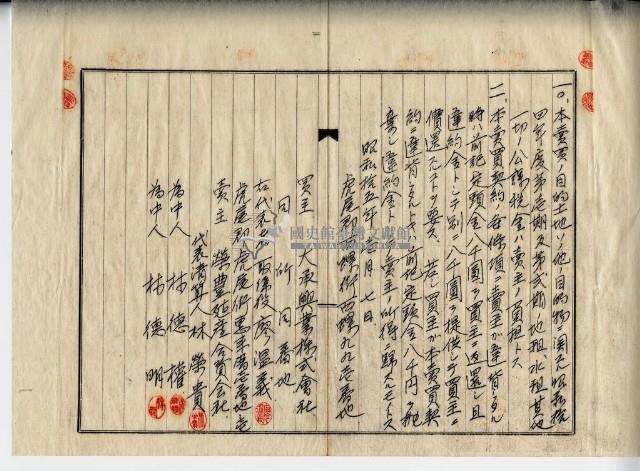 一〇、本賣買ノ目的土地ソノ他ノ目的物ニ関スル昭和拾
四年度第壱期及第弐期ノ地租、水租其他
一切ノ公課税金ハ賣主ノ負担トス
一一、本賣買契約各條項ニ賣主ガ違背シタル
時ハ前記定頭金八千圓ヲ買主ニ返還シ且
違約金トシテ別ニ八千圓ヲ提供シテ買主ニ
償還スルコトヲ要ス、若シ買主ガ本賣買契
約ニ違背シタルトキハ前記定頭金八千円ヲ抛
棄シ違約金トシ賣主ノ所得ニ歸スルモノトス
昭和拾五年 月七日
虎尾郡西螺街西螺九九壱番地
買主 大承興業株式會社
同所同番地
右代表者取締役 廖温義
虎尾郡虎尾街 番地
賣主 榮豊 産合資会社
代表清算人 林榮貴
為中人 林德權
為中人 林德明
國史館臺灣文獻館